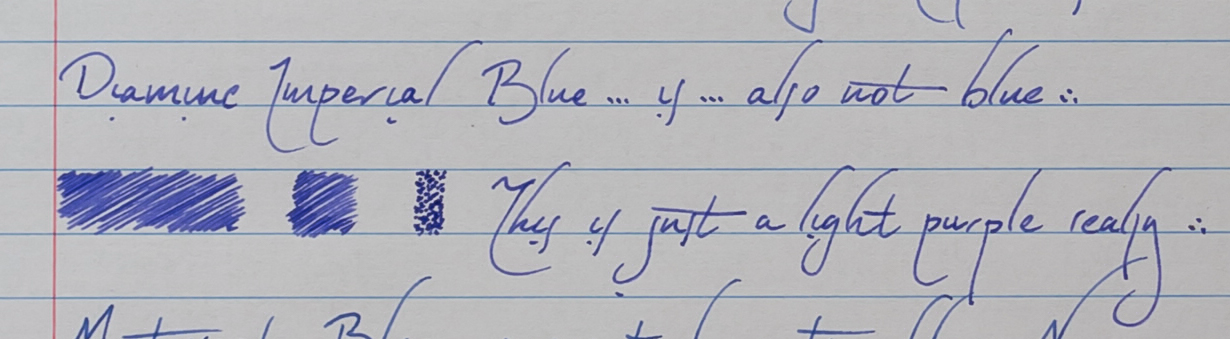 Diamine Imperial Blue ... is ... also not blue :.
This is just a light purple really :.